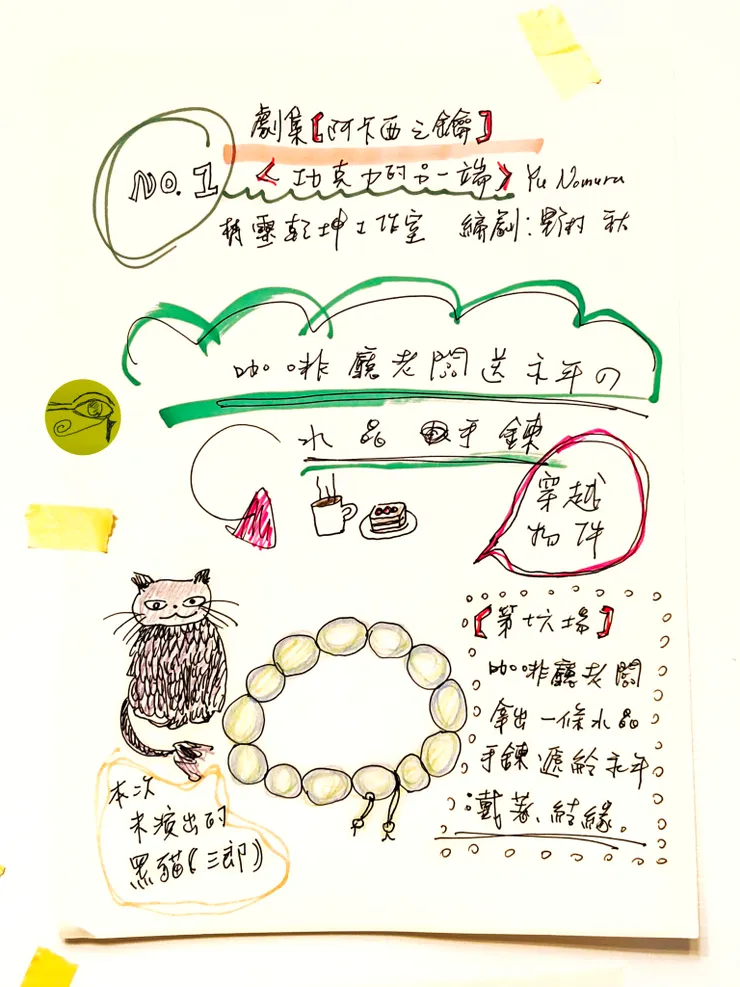 劇集【阿卡西之鑰】
NO.1
《功克力的另一端》 Yu Nomura
精靈乾坤工作室 編劇:野村 秋
咖啡廳老闆送永年の
水晶手鍊
穿越
物件
【第十六場】
咖啡廳老闆
拿出一條水晶
手鍊遞給永年
:戴著、結緣。
本次
未演出的
黑貓(三郎)